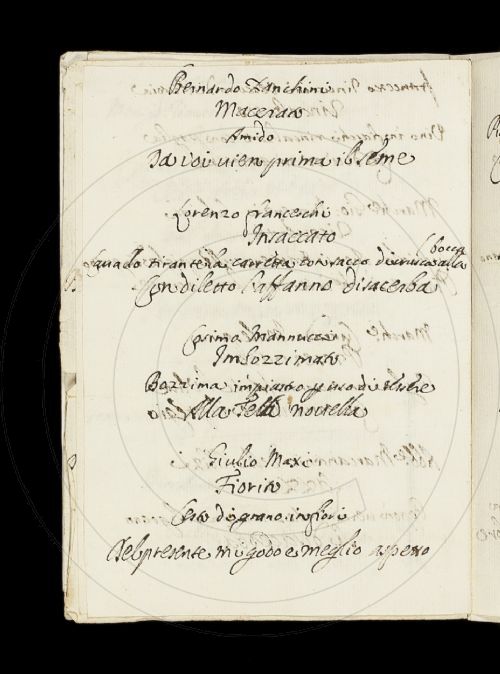 Bernardo Zanchini
Macerato
Amido
Da voi vien prima il seme
Lorenzo Franceschi
Insaccato
bocca
Cavallo tirante la carretta con sacco di crusca alla
Con diletto l'affanno disacerba
Cosimo Mannucci
Imbozzimato
Bozzima impiastro
Alla Tela novella
Giulio Mazi
Fiorito
Cesto di grano in fiori
Del presente mi godo e meglio aspetto